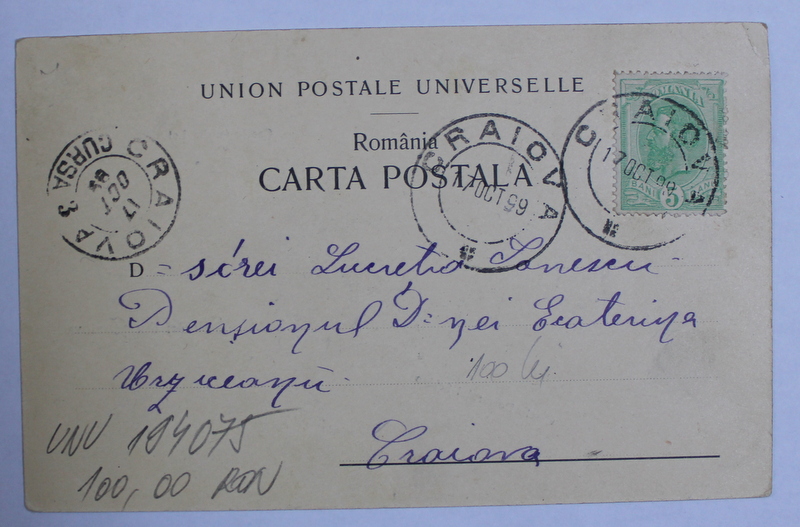 UNION POSTALE UNIVERSELLE
România
CARTA POSTALA
CRAIOVA
17 OCT 99
CRAIOVA
17 OCT 99
BANI 5 BANI
CRAIOVA 3
CURSA
17 OCT 99
D=șórei Lucreția Ionescu
Pensionul D=nei Ecaterina
Urziceanu
Craiova
100 lei
UNU 194075
100,00 RON